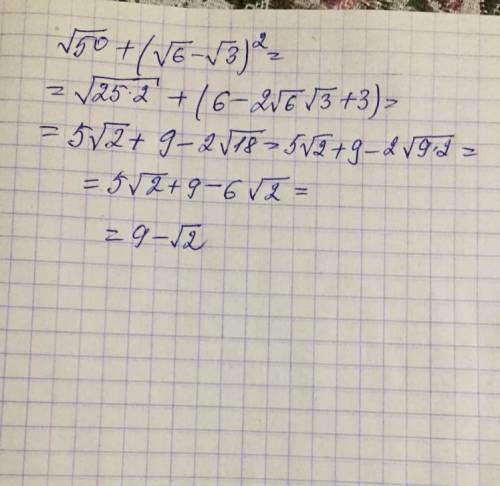 √50 + (√6 - √3)² =
= √25·2 + (6 - 2√6 √3 + 3) =
= 5√2 + 9 - 2√18 = 5√2 + 9 - 2√9·2 =
= 5√2 + 9 - 6√2 =
= 9 - √2